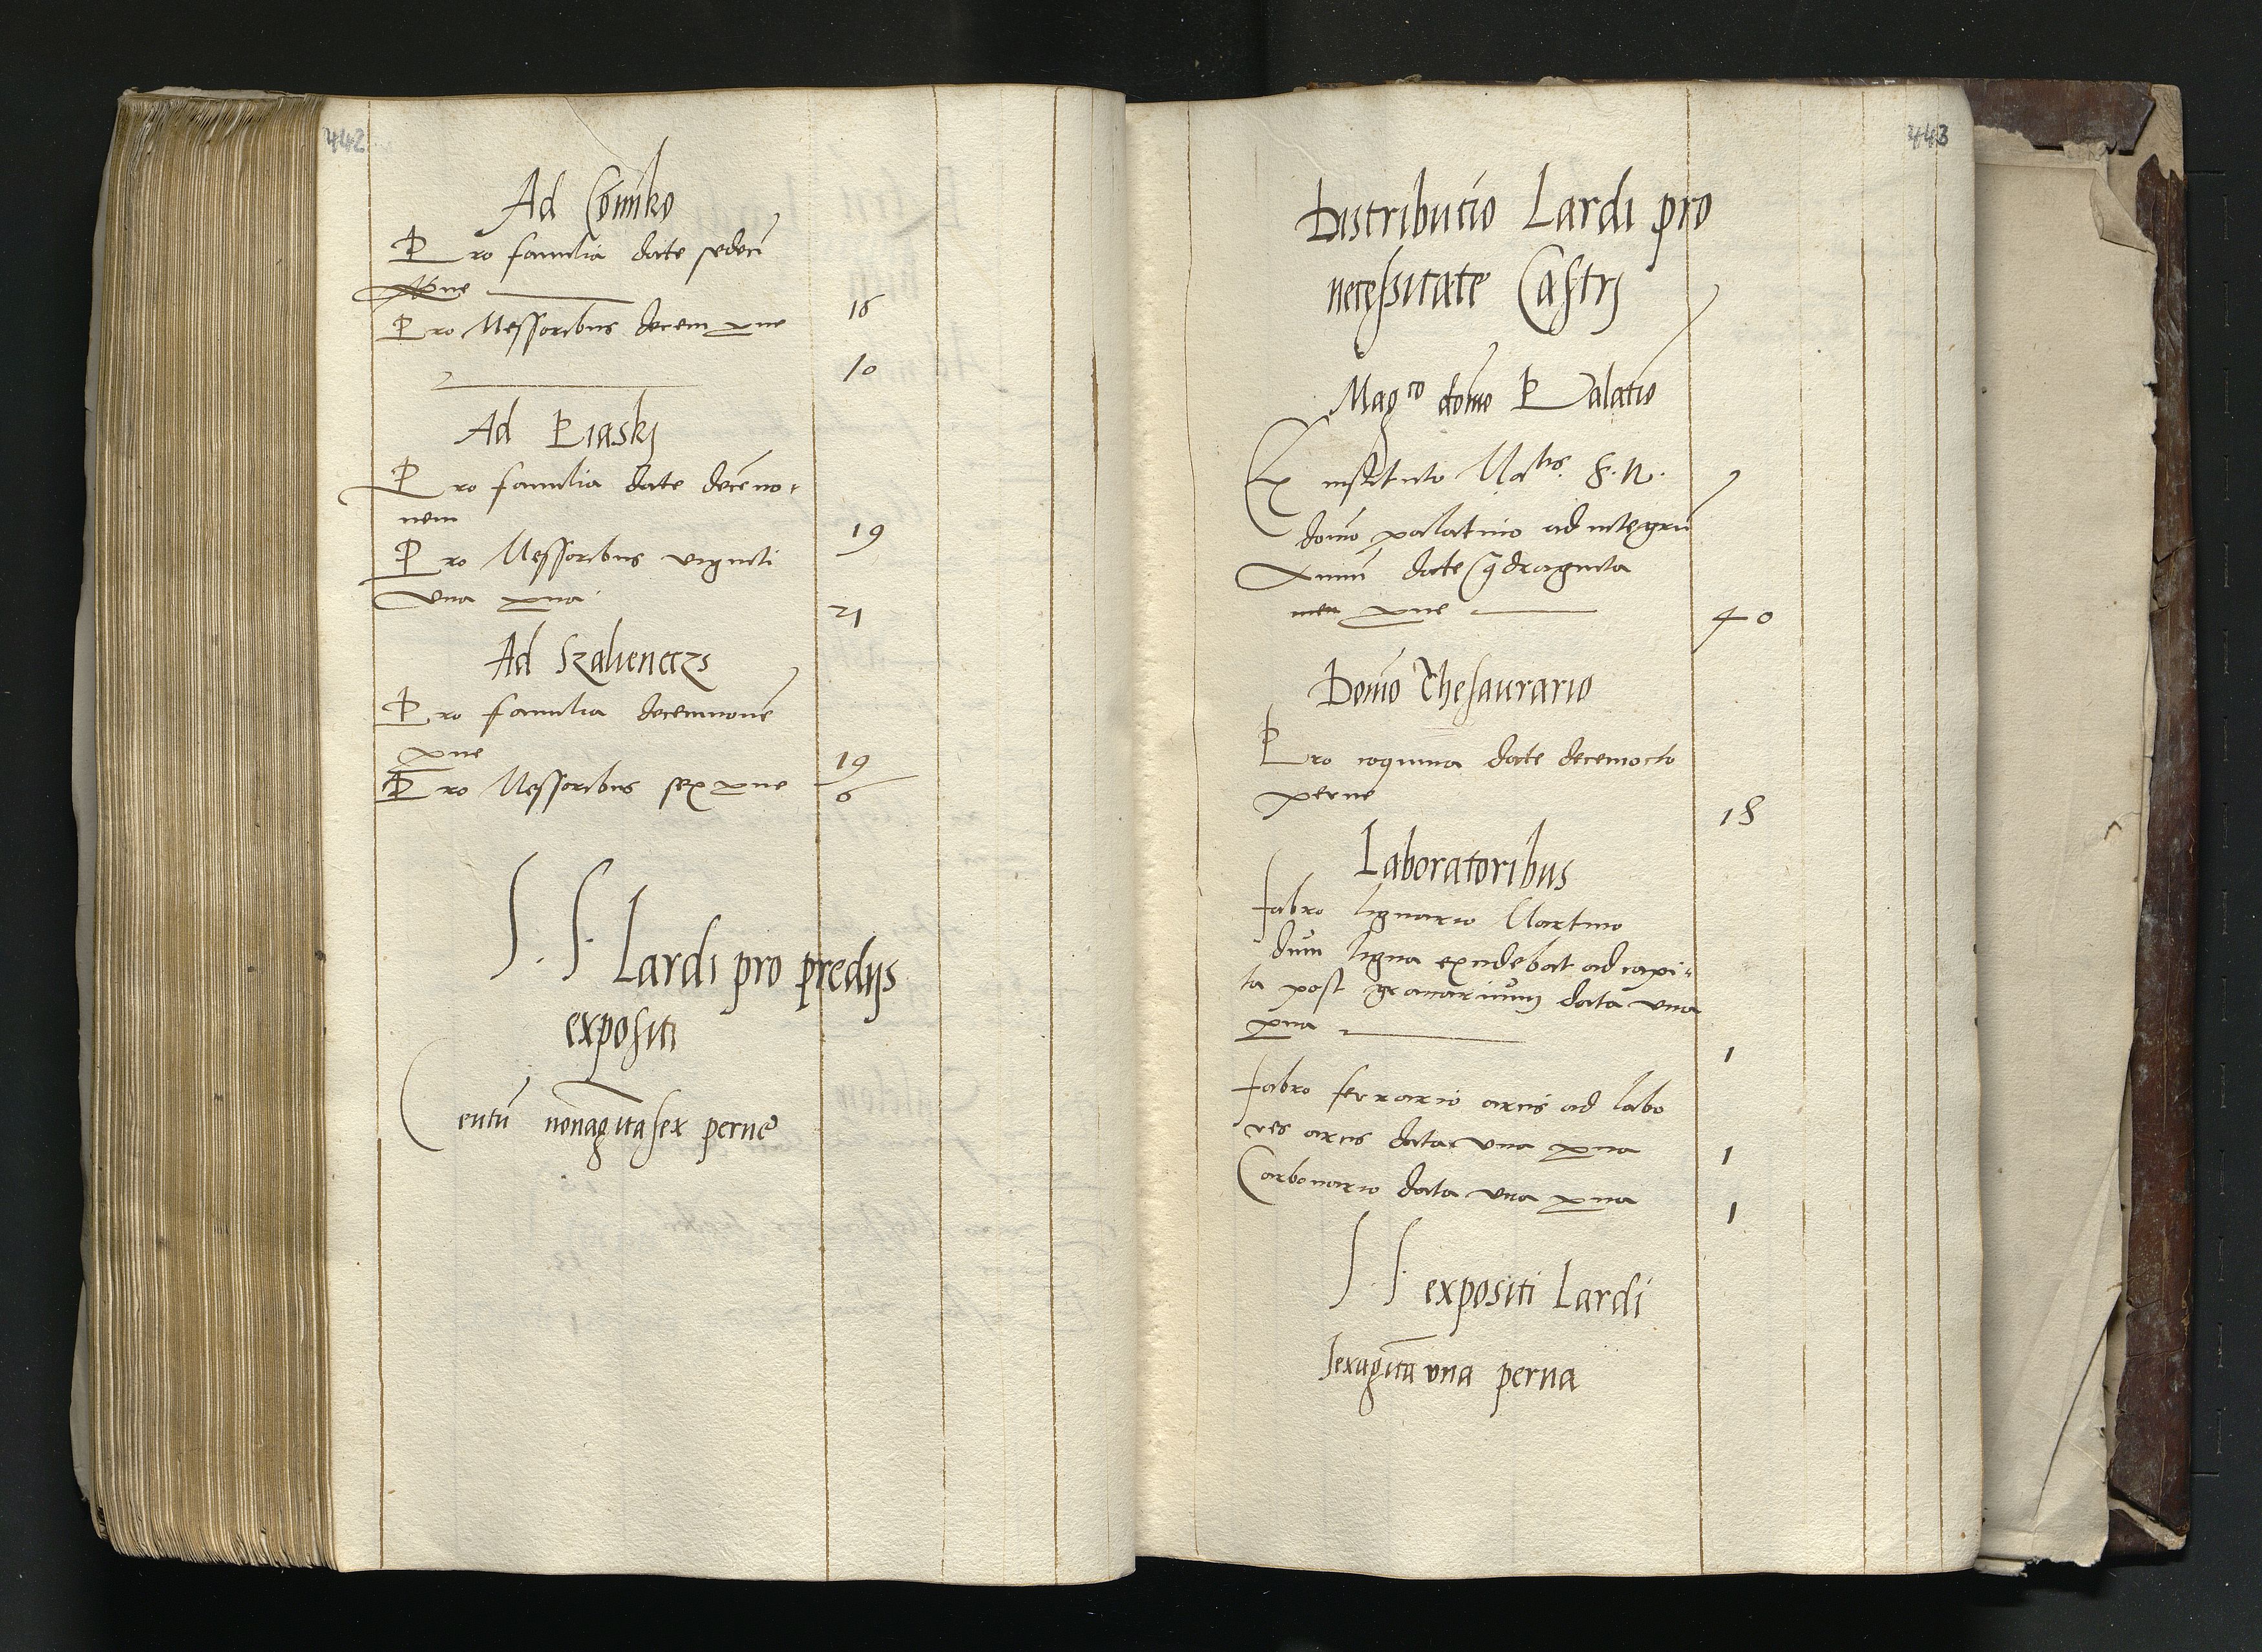 442
Ad Comiko
Pro familia date sedeci
p̱ne
16
Pro Messoribus decem p̱ne
10
Ad Piaskj
Pro familia date deceno-
nem
19
Pro Messoribus viginti
vna p̱na
21
Ad Szalienczs
Pro familia decemnouē
p̱ne
19
Pro Messoribus sex p̱ne
6
S. S. Lardi pro predijs
expositi
Centū nonagītasex perne
443
Distributio Lardi pro
necessitate Castrj
Magco domo Palatio
Ex instituto Matis S. R.
domo palatino ad integrū
Annū date qdraginta
p̱ne
40
Domo Thesaurario
Pro coquina date decemocto
perne
18
Laboratoribus
fabro lignario Martino
dum ligna excidebat ad capi-
ta post granarium data vna
p̱na
1
fabro ferrario arcis ad labo
res arcis data vna p̱na
1
Carbonario data vna p̱na
1
S. S. expositi Lardi
sexagītā vna perna